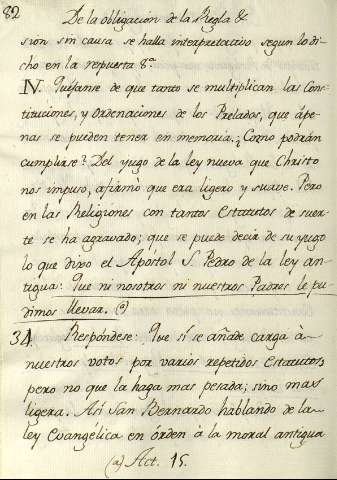 82
De la obligación de la Regla &
sion sin causa se halla interpretativo segun lo di-
cho en la repuesta 8ª
IV. Quéjanse de que tanto se multiplican las Cons-
tituciones, y Ordenaciones de los Prelados, que ape-
nas se pueden tener en memoria. ¿Como podrán
cumplirse? Del yugo de la ley nueva que Christo
nos impuso, afirmó que era ligero y suave. Pero
en las Religiones con tantos Estatutos de suer-
te se ha agravado; que se puede decir de su yugo
lo que dixo el Apostol S. Pedro de la ley an-
tigua: Que ni nosotros ni nuestros Padres le pu-
dimos llevar. (a)
34 Respóndese: Que sí se añade carga à
nuestros votos por varios repetidos Estatutos,
pero no que la haga mas pesada; sino mas
ligera. Así San Bernardo hablando de la
ley Evangélica en órden à la moral antigua
(a) Act. 15.